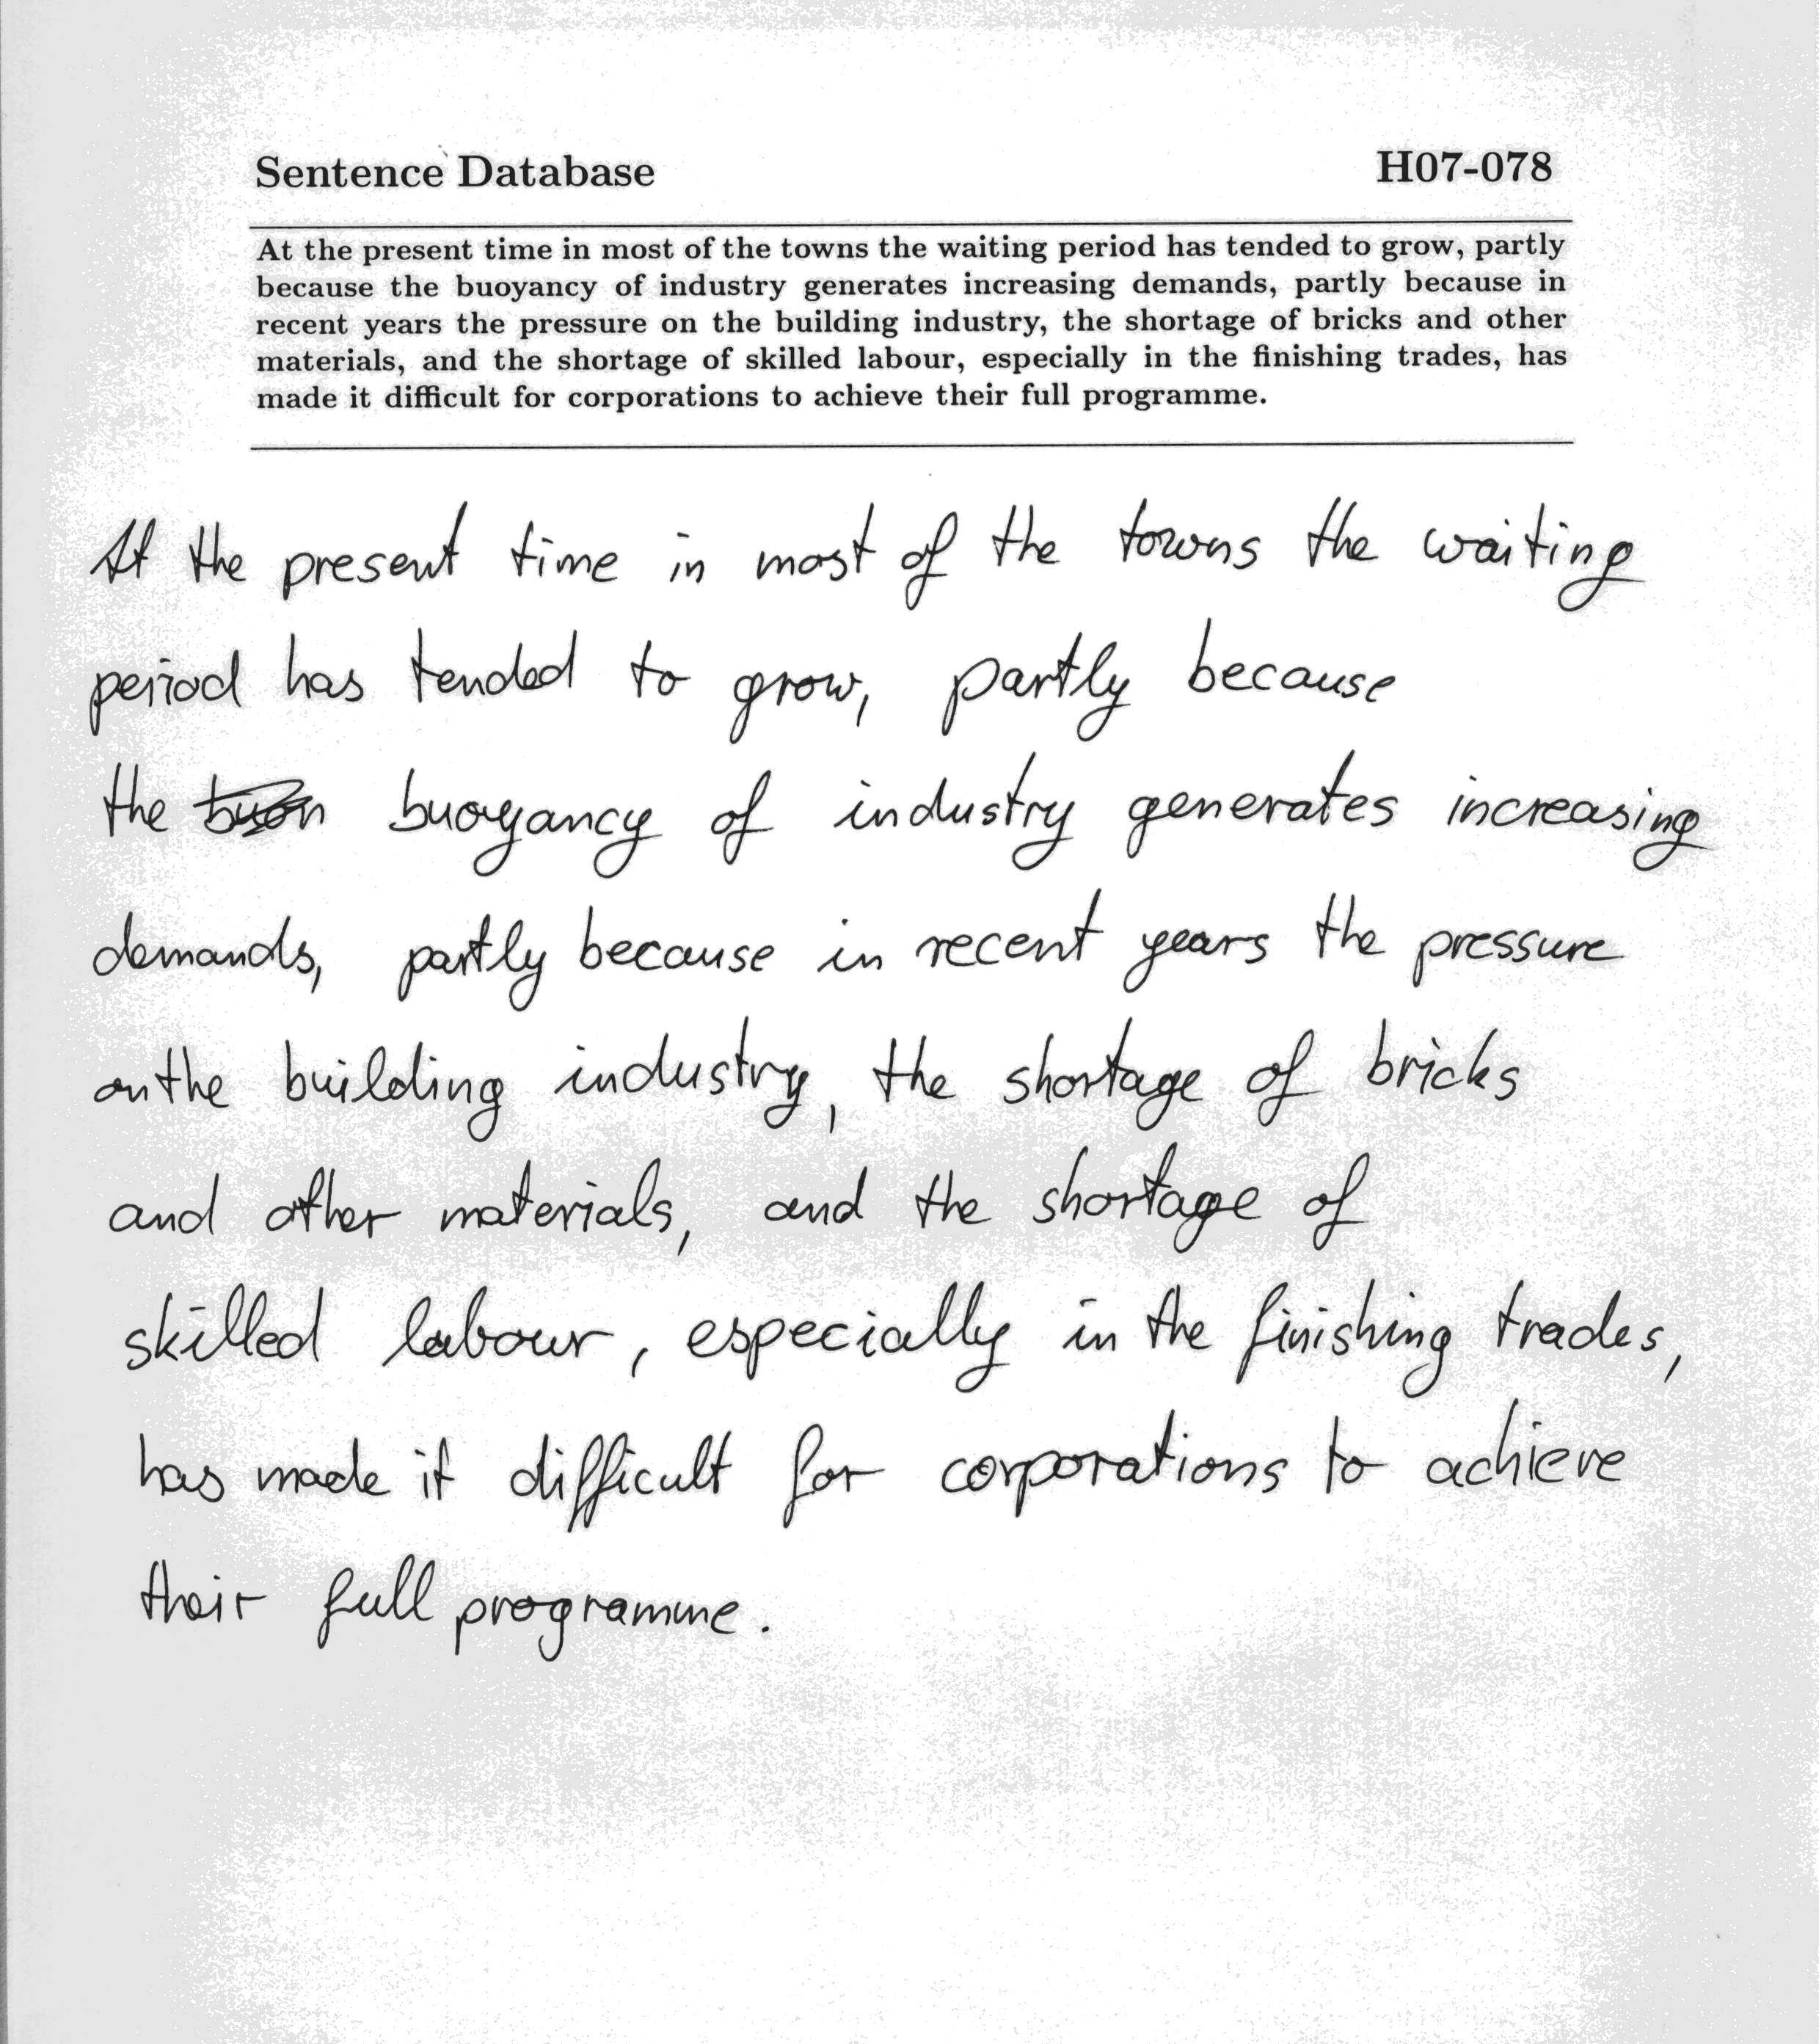 Sentence Database H07-078
At the present time in most of the towns the waiting period has tended to grow, partly
because the buoyancy of industry generates increasing demands, partly because in
recent years the pressure on the building industry, the shortage of bricks and other
materials, and the shortage of skilled labour, especially in the finishing trades, has
made it difficult for corporations to achieve their full programme.
At the present time in most of the towns the waiting
period has tended to grow, partly because
the buoyancy of industry generates increasing
demands, partly because in recent years the pressure
on the building industry, the shortage of bricks
and other materials, and the shortage of
skilled labour, especially in the finishing trades,
has made it difficult for corporations to achieve
their full programme.